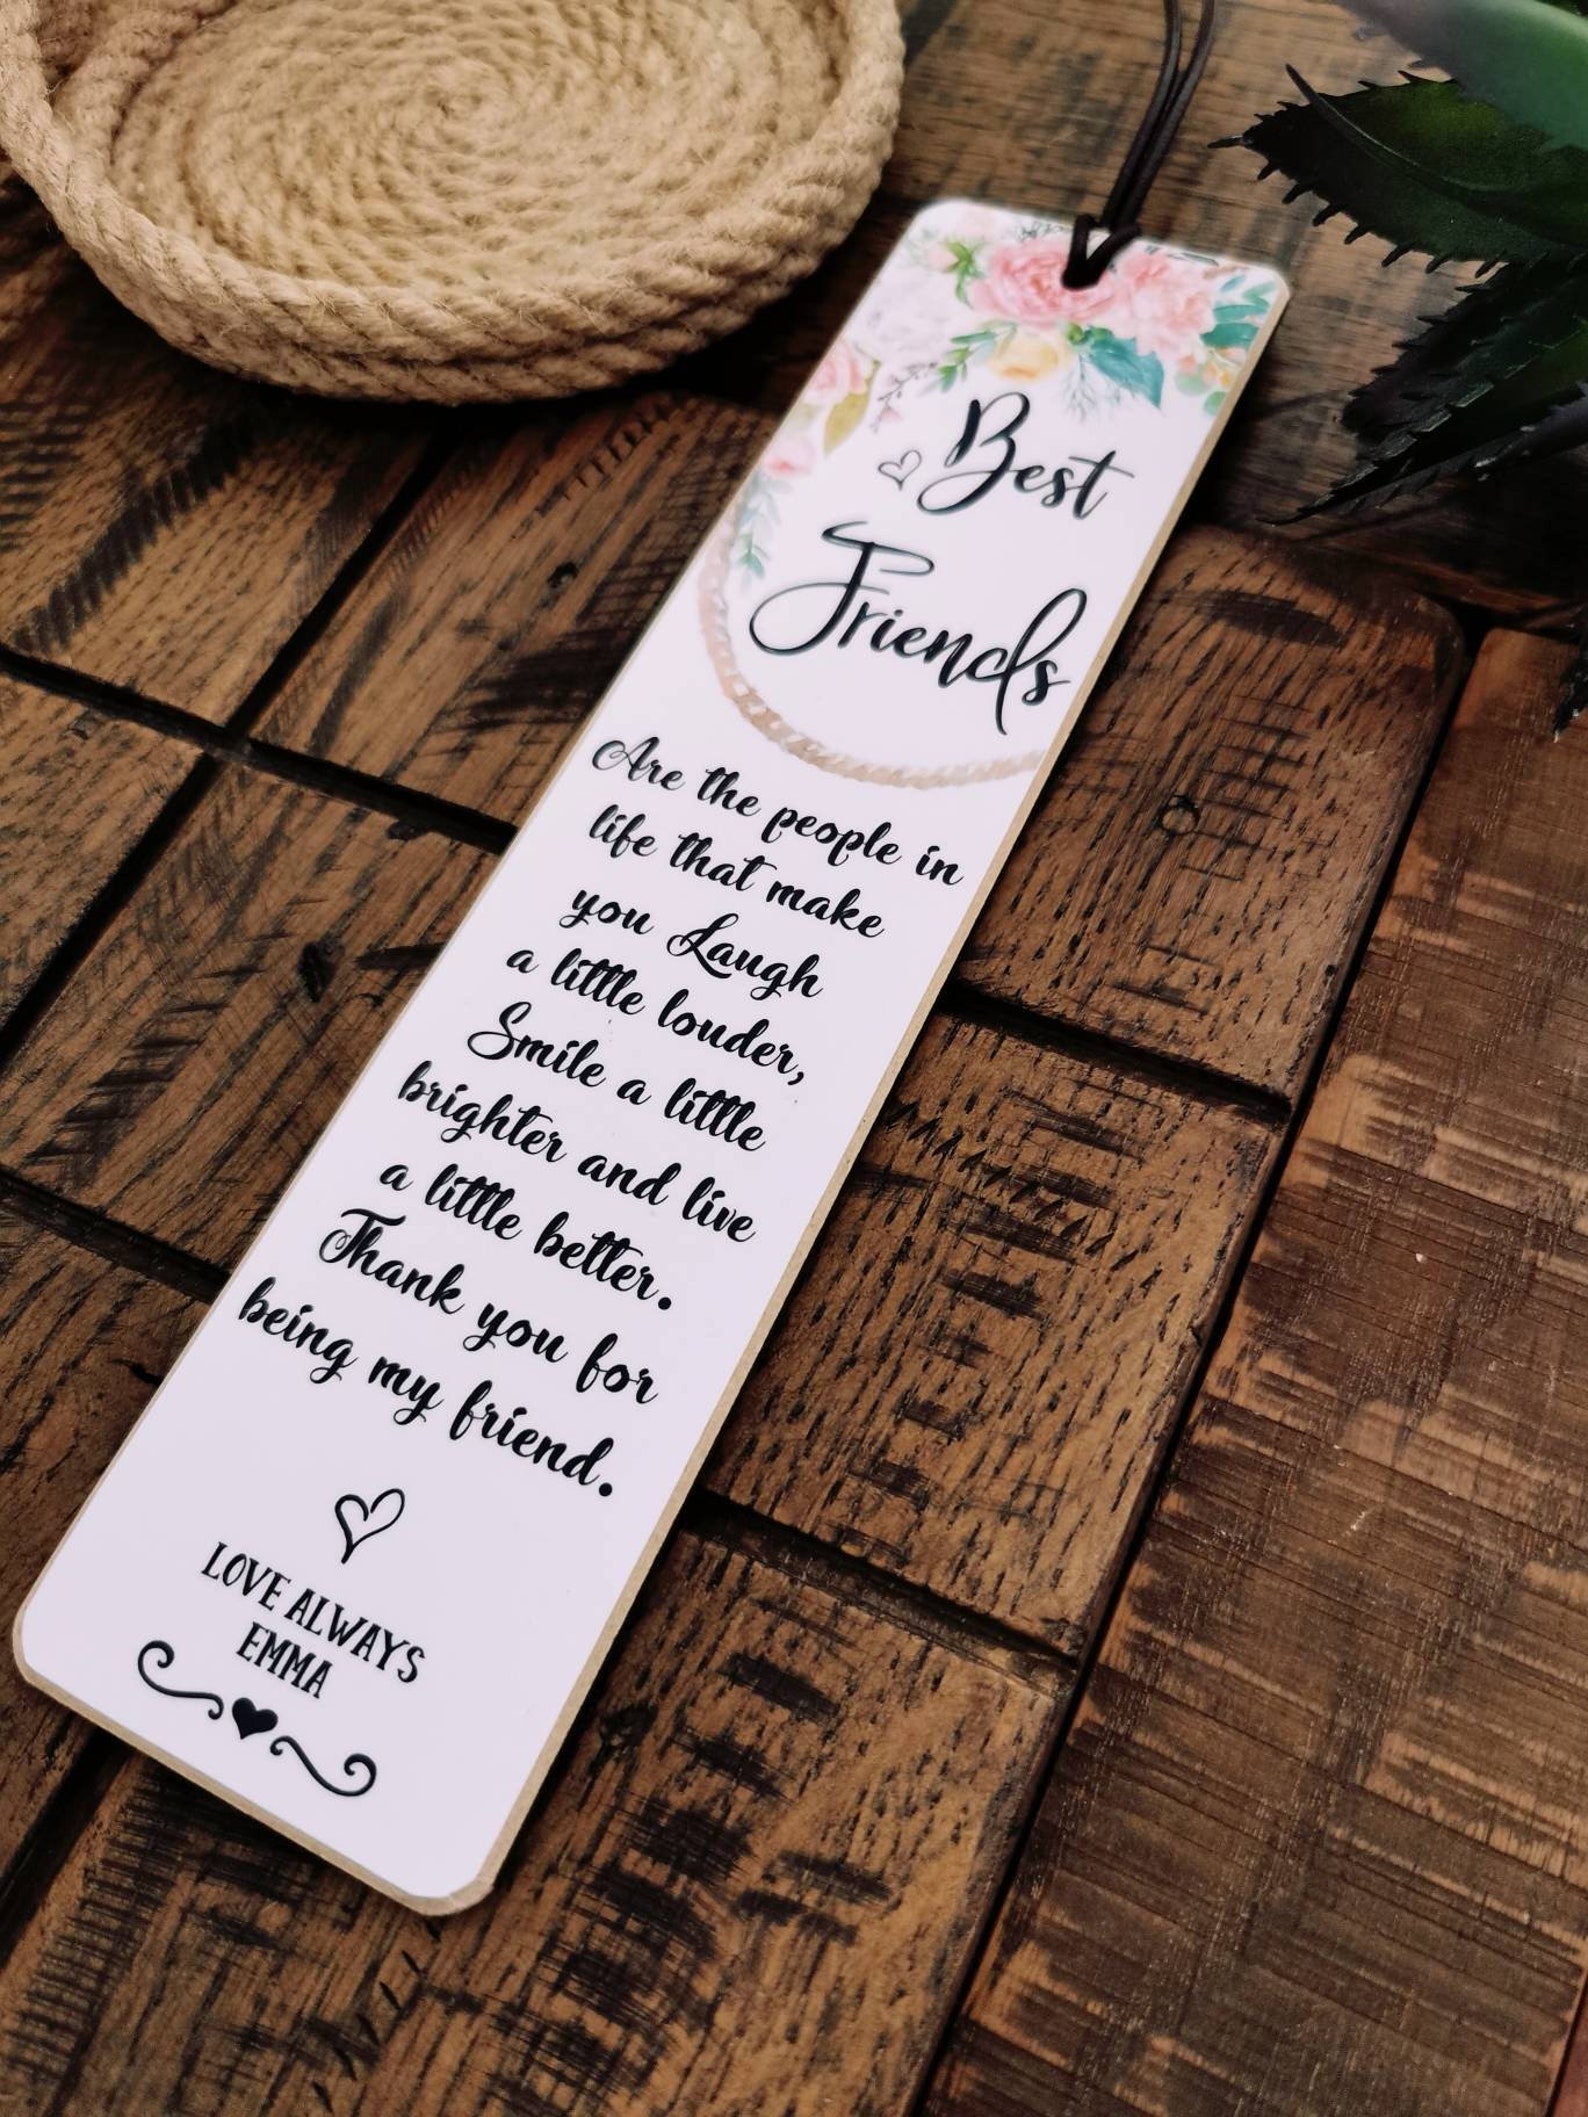 Best
Friends
Are the people in
life that make
you Laugh
a little louder,
Smile a little
brighter and live
a little better.
Thank you for
being my friend.
LOVE ALWAYS
EMMA